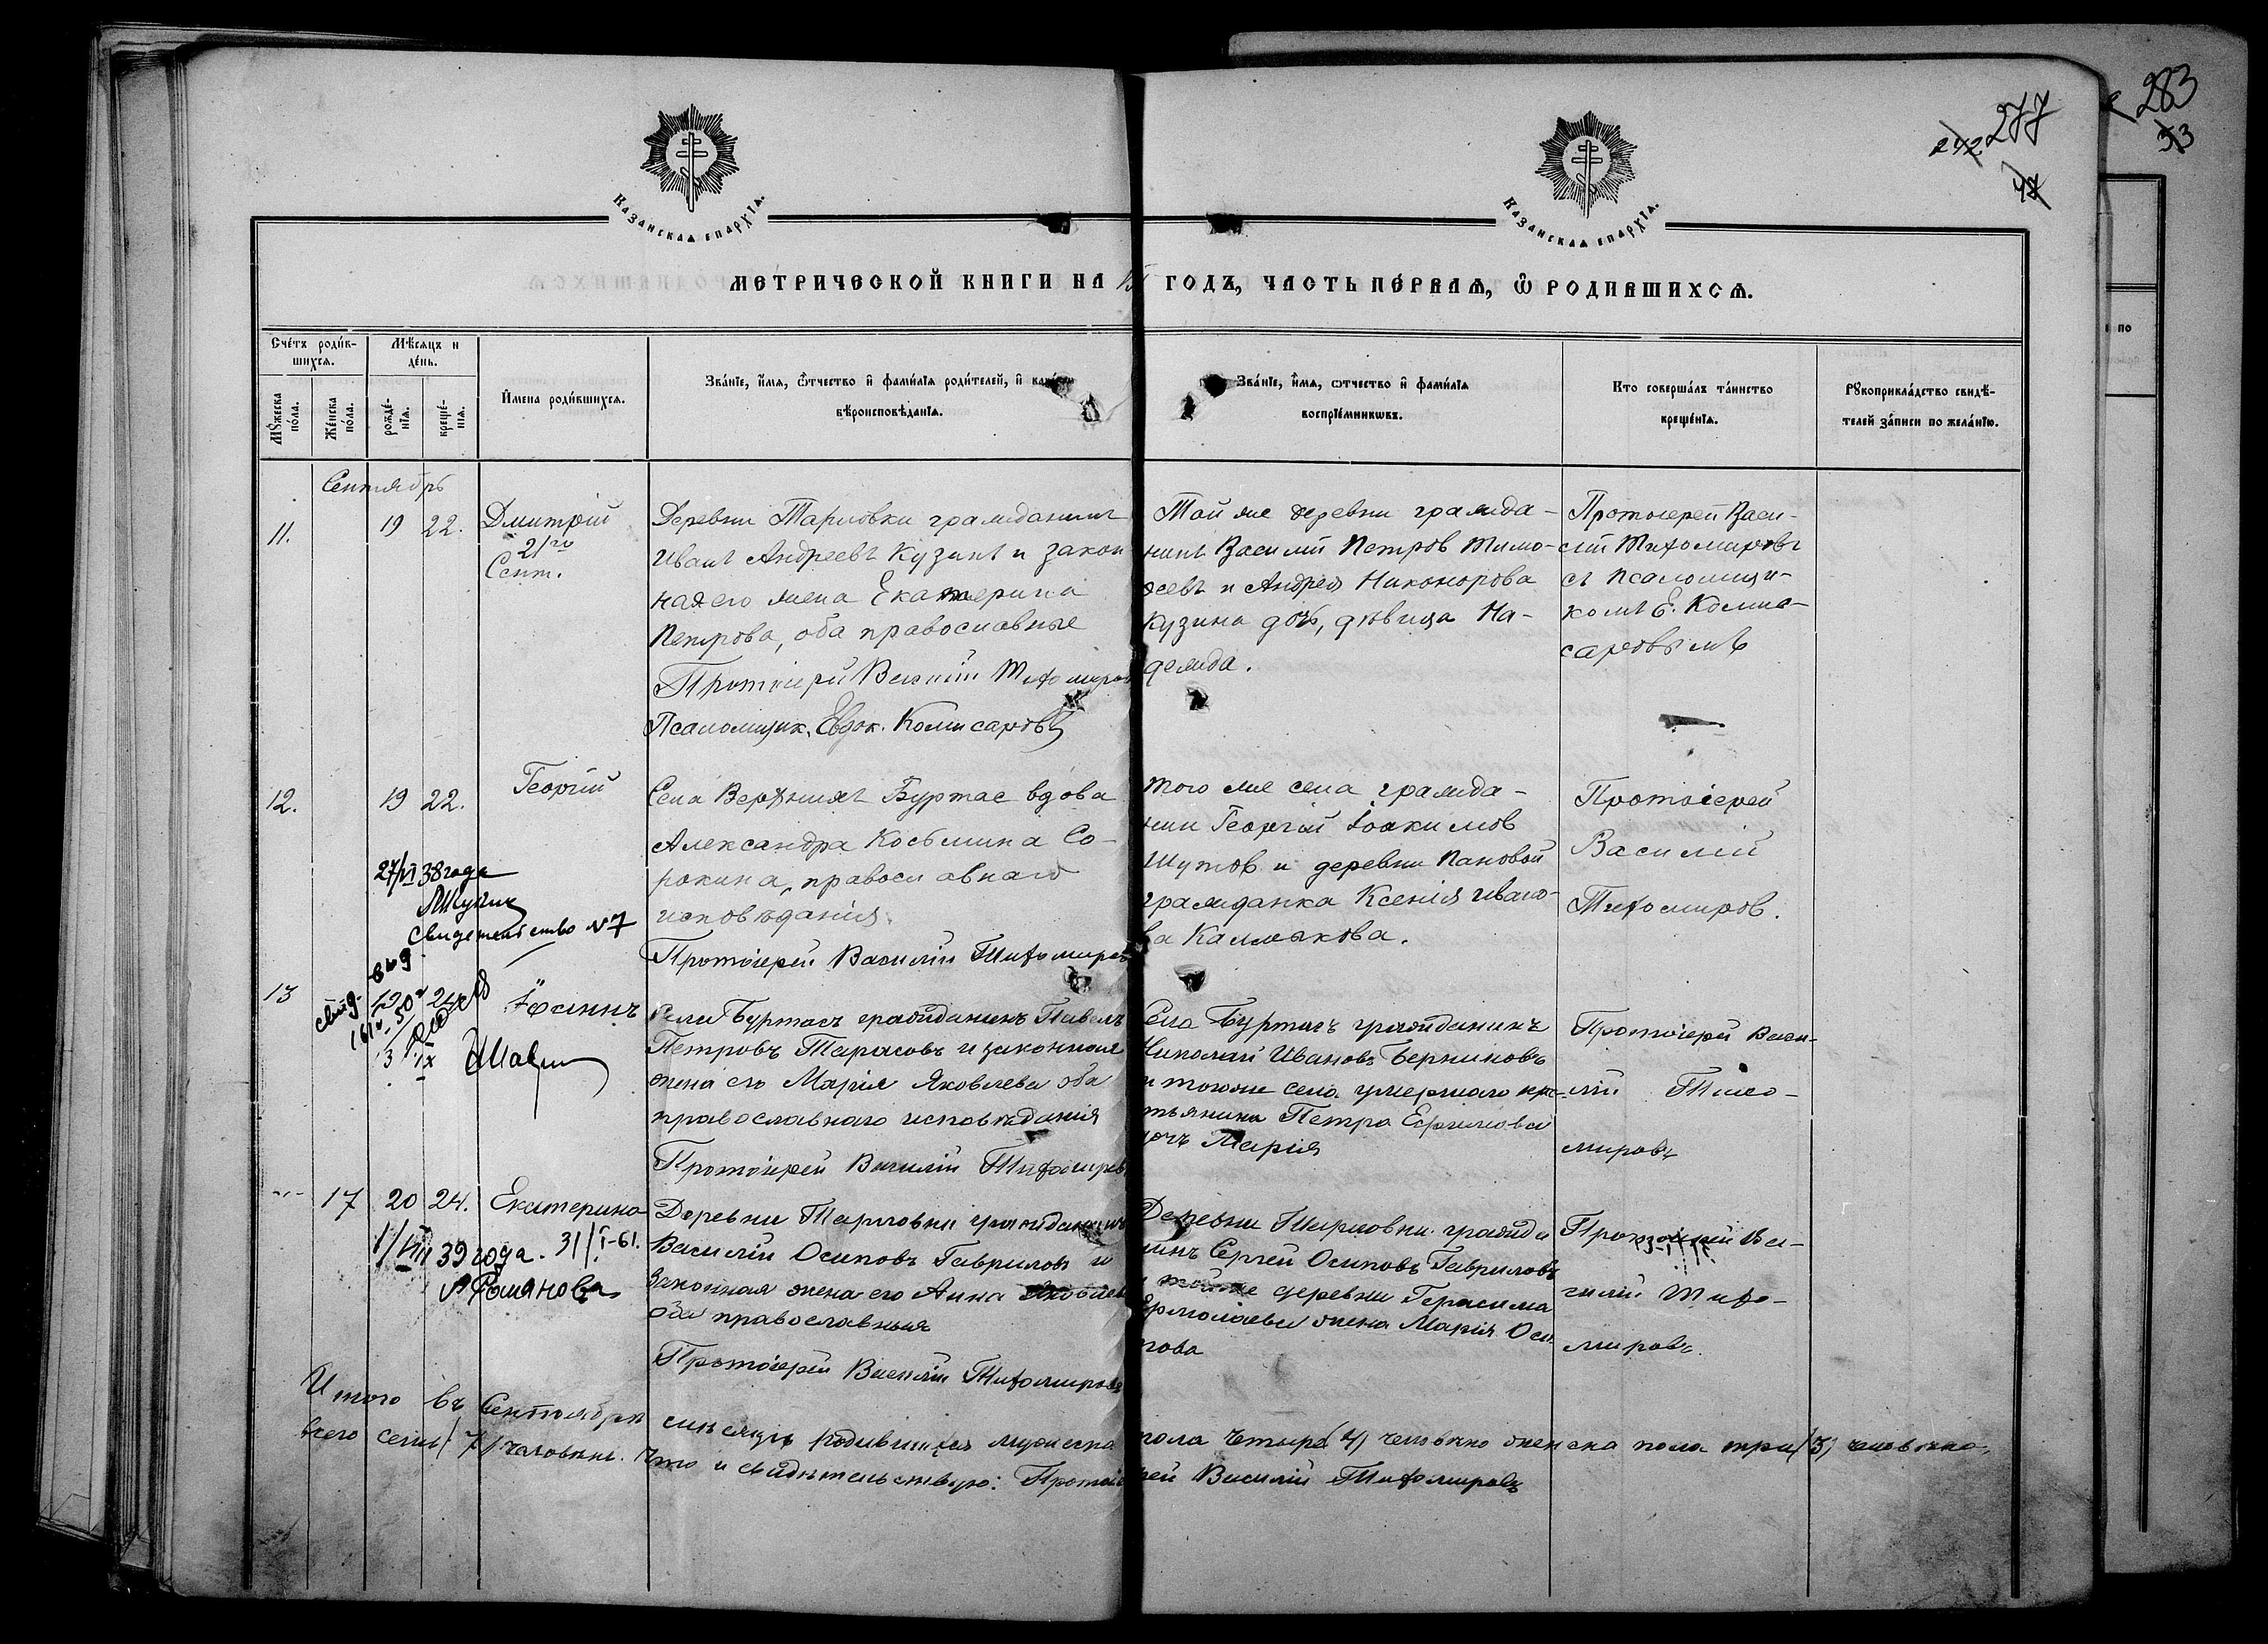 283
53
277
242
47
Казанская епархїа.
Казанская епархїа.
МЕТРИЧЕСКОЙ КНИГИ НА ГОДЪ, ЧАСТЬ ПЕ́РВАЯ, Ѿ РОДИ́ВШИХСЯ.
Сче́тъ роди́в-
шихся.
Мѣсяцъ и
де́нь.
Мꙋ́жеска
по́ла.
Же́нска
по́ла.
рожде́-
нїя.
креще́-
нїя.
И́мена роди́вшихся.
Зва́нїе, и́мя, ѻ҆́тчество и҆ фами́лїя роди́телей, и҆
вѣроисповѣ́данїя.
Зва́нїе, и́мя, ѻтчество и҆ фами́лїя
воспрїе́мникѡвъ.
Кто соверша́лъ та́инство
креще́нїя.
Рꙋкоприкла́дство свидѣ́-
телей за́писи по жела́нїю.
по
Сентябрь
11. 19 22. Дмитрій
21го
Сент.
Деревни Тарловки гражданинъ
Иванъ Андреевъ Кузинъ и закон
ная его жена Екатерина
Петрова, оба православные
Протоіерей Василій Тихомировъ
Псаломщик. Евдок. Комисаровъ
Той же деревни гражда-
нинъ Василій Петров Тимо-
феевъ и Андрея Никонорова
Кузина дочь, девица На-
дежда.
Протоіерей Васи-
лій Тихомировъ
съ псаломщи-
комъ Е. Комис-
саровымъ
12. 19 22. Георгій
Села Верхнихъ Буртас вдова
Александра Косьмина Со-
рокина, православнаго
исповѣданія
Протоіерей Василій Тихомировъ
того же села гражда-
нин Георгій Іоакимов
Шутов и деревни Пановой
гражданка Ксенія Ивано-
ва Калмыкова.
Протоіерей
Василій
Тихомиров.
27/VI 38 года
Свидетельство №7
13 19 24 Іоаннъ
Села Буртасъ гражданинъ Павелъ
Петровъ Тарасовъ и законная
жена его Марія Яковлева оба
православнаго исповѣданія
Протоіерей Василій Тихомировъ
Села Буртасъ гражданинъ
Николай Ивановъ Берниковъ
и тогоже села умершаго кре-
стьянина Петра Ефимова
дочь Марія
Протоіерей Васи-
лій Тихо-
мировъ
17 20 24. Екатерина
1/VIII 39 года. 31/I-61.
Романова
Деревни Тарловки гражданинъ
Василій Осиповъ Гавриловъ и
законная жена его Анна Яковлева
оба православныя
Протоіерей Василій Тихомировъ
Деревни Тарловки гражда
нинъ Сергѣй Осиповъ Гавриловъ
и тойже деревни Герасима
Ермолаева жена Марія Оси
пова
Протоіерей Ва-
силій Тихо-
мировъ.
Итого въ Сентябрѣ мѣсяцѣ родившихся мужеска пола четыре (4) человѣка женска пола три (3) человѣка,
всего семь (7) человѣкъ. Что и свидѣтельствую: Протоіерей Василій Тихомировъ